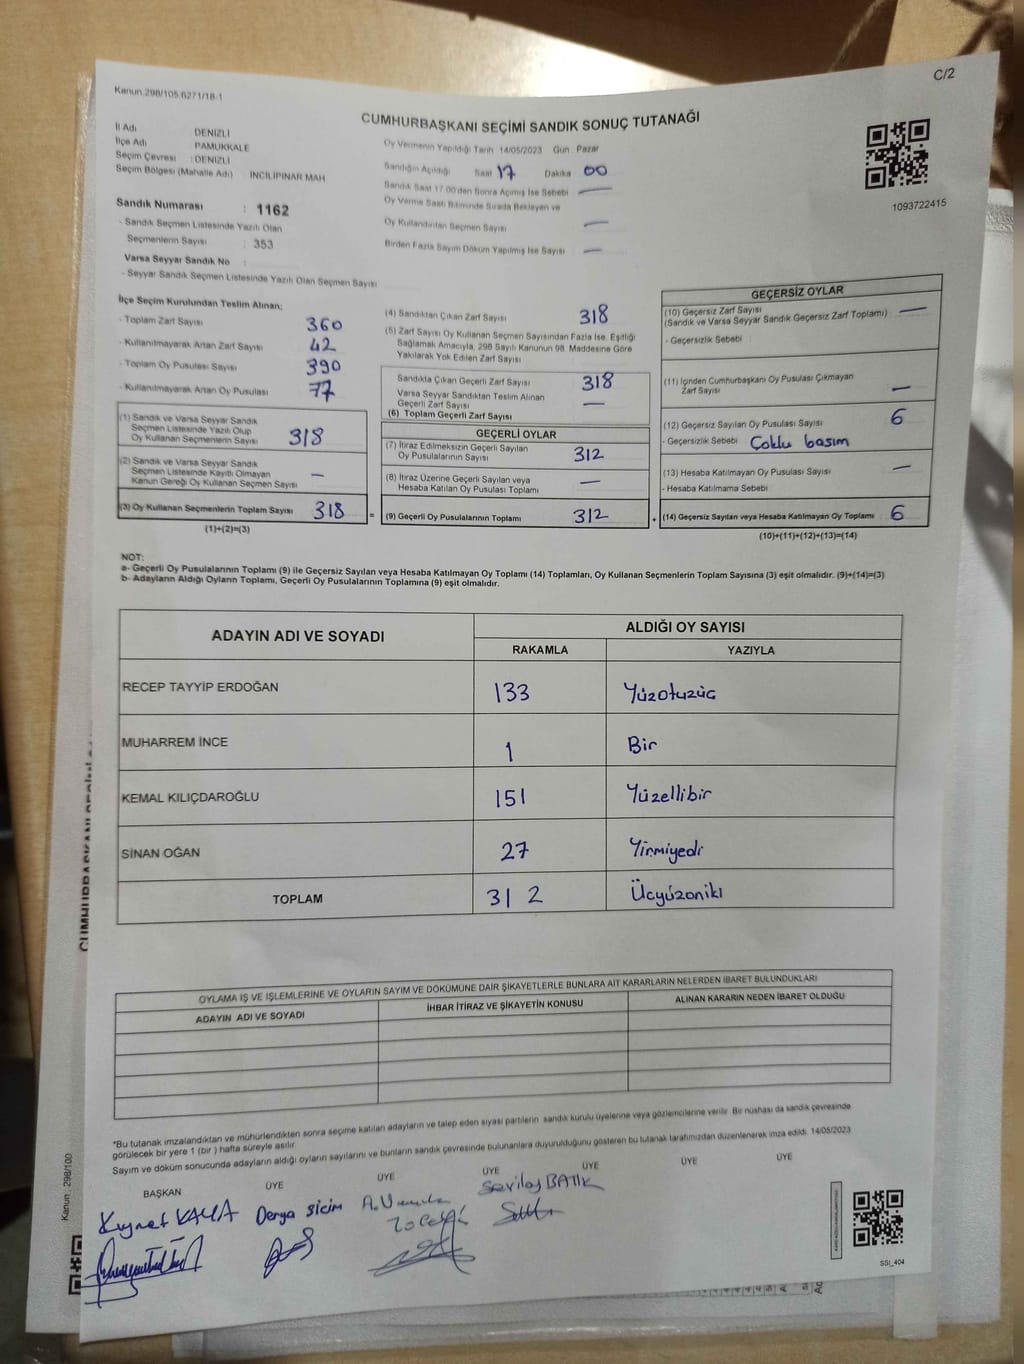 C/2
Kanun.298/105.6271/18-1
CUMHURBAŞKANI SEÇİMİ SANDIK SONUÇ TUTANAĞI
İl Adı DENİZLİ
İlçe Adı PAMUKKALE
Seçim Çevresi : DENİZLİ
Seçim Bölgesi (Mahalle Adı) İNCİLİPINAR MAH
Oy Vermenin Yapıldığı Tarih 14/05/2023 Gün Pazar
Sandığın Açıldığı Saat 17 Dakika 00
Sandık Saat 17.00'den Sonra Açılmış İse Sebebi —
Oy Verme Saati Bitiminde Sırada Bekleyen ve
Oy Kullandırılan Seçmen Sayısı —
Birden Fazla Sayım Döküm Yapılmış İse Sayısı —
1093722415
Sandık Numarası : 1162
- Sandık Seçmen Listesinde Yazılı Olan
Seçmenlerin Sayısı : 353
Varsa Seyyar Sandık No :
- Seyyar Sandık Seçmen Listesinde Yazılı Olan Seçmen Sayısı
İlçe Seçim Kurulundan Teslim Alınan;
- Toplam Zarf Sayısı 360
- Kullanılmayarak Artan Zarf Sayısı 42
- Toplam Oy Pusulası Sayısı 390
- Kullanılmayarak Artan Oy Pusulası 77
(1) Sandık ve Varsa Seyyar Sandık
Seçmen Listesinde Yazılı Olup
Oy Kullanan Seçmenlerin Sayısı 318
(2) Sandık ve Varsa Seyyar Sandık
Seçmen Listesinde Kayıtlı Olmayan
Kanun Gereği Oy Kullanan Seçmen Sayısı —
(3) Oy Kullanan Seçmenlerin Toplam Sayısı 318
(1)+(2)=(3)
=
(4) Sandıktan Çıkan Zarf Sayısı 318
(5) Zarf Sayısı Oy Kullanan Seçmen Sayısından Fazla İse, Eşitliği
Sağlamak Amacıyla, 298 Sayılı Kanunun 98. Maddesine Göre
Yakılarak Yok Edilen Zarf Sayısı
Sandıkta Çıkan Geçerli Zarf Sayısı 318
Varsa Seyyar Sandıktan Teslim Alınan
Geçerli Zarf Sayısı —
(6) Toplam Geçerli Zarf Sayısı
GEÇERLİ OYLAR
(7) İtiraz Edilmeksizin Geçerli Sayılan
Oy Pusulalarının Sayısı 312
(8) İtiraz Üzerine Geçerli Sayılan veya
Hesaba Katılan Oy Pusulası Toplamı —
(9) Geçerli Oy Pusulalarının Toplamı 312
+
GEÇERSİZ OYLAR
(10) Geçersiz Zarf Sayısı —
(Sandık ve Varsa Seyyar Sandık Geçersiz Zarf Toplamı)
- Geçersizlik Sebebi :
(11) İçinden Cumhurbaşkanı Oy Pusulası Çıkmayan
Zarf Sayısı —
(12) Geçersiz Sayılan Oy Pusulası Sayısı 6
- Geçersizlik Sebebi Çoklu basım
(13) Hesaba Katılmayan Oy Pusulası Sayısı —
- Hesaba Katılmama Sebebi
(14) Geçersiz Sayılan veya Hesaba Katılmayan Oy Toplamı 6
(10)+(11)+(12)+(13)=(14)
NOT:
a- Geçerli Oy Pusulalarının Toplamı (9) ile Geçersiz Sayılan veya Hesaba Katılmayan Oy Toplamı (14) Toplamları, Oy Kullanan Seçmenlerin Toplam Sayısına (3) eşit olmalıdır. (9)+(14)=(3)
b- Adayların Aldığı Oyların Toplamı, Geçerli Oy Pusulalarının Toplamına (9) eşit olmalıdır.
ADAYIN ADI VE SOYADI ALDIĞI OY SAYISI
RAKAMLA YAZIYLA
RECEP TAYYİP ERDOĞAN 133 Yüzotuzüç
MUHARREM İNCE 1 Bir
KEMAL KILIÇDAROĞLU 151 Yüzellibir
SİNAN OĞAN 27 Yirmiyedi
TOPLAM 312 Üçyüzoniki
OYLAMA İŞ VE İŞLEMLERİNE VE OYLARIN SAYIM VE DÖKÜMÜNE DAİR ŞİKAYETLERLE BUNLARA AİT KARARLARIN NELERDEN İBARET BULUNDUKLARI
ADAYIN ADI VE SOYADI İHBAR İTİRAZ VE ŞİKAYETİN KONUSU ALINAN KARARIN NEDEN İBARET OLDUĞU
*Bu tutanak imzalandıktan ve mühürlendikten sonra seçime katılan adayların ve talep eden siyasi partilerin sandık kurulu üyelerine veya gözlemcilerine verilir. Bir nüshası da sandık çevresinde
görülecek bir yere 1 (bir) hafta süreyle asılır.
Sayım ve döküm sonucunda adayların aldığı oyların sayılarını ve bunların sandık çevresinde bulunanlara duyurulduğunu gösteren bu tutanak tarafımızdan düzenlenerek imza edildi. 14/05/2023
BAŞKAN ÜYE ÜYE ÜYE ÜYE ÜYE ÜYE
Kıymet KAYA Derya Sicim Sevilay BATIK
Kanun : 298/100
SSİ_404